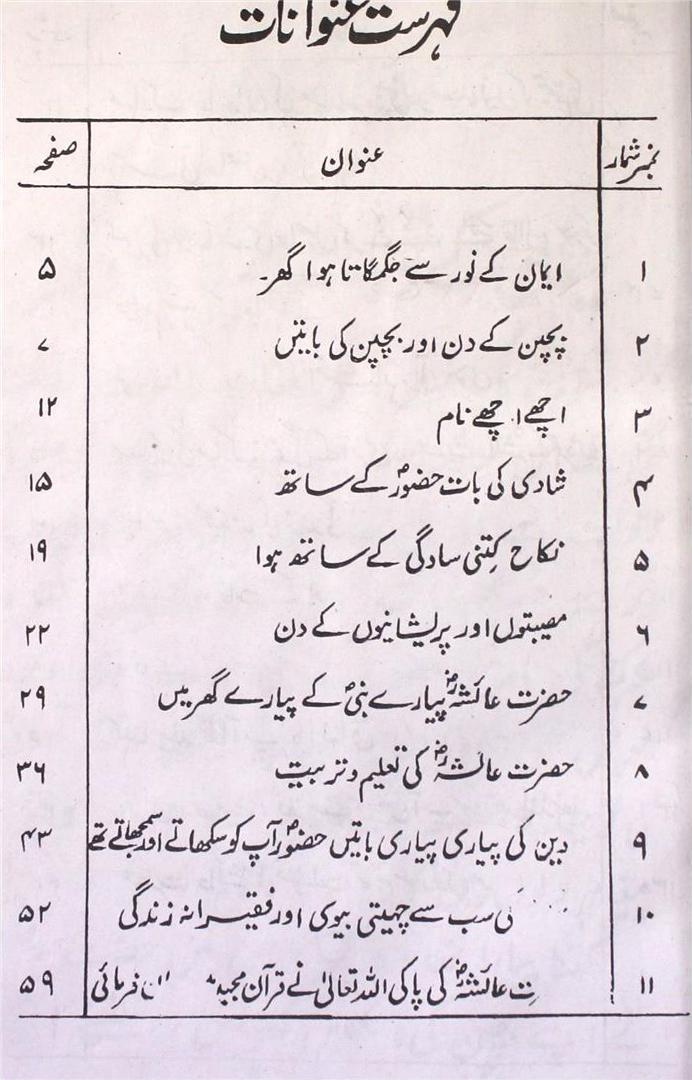 فہرست عنوانات
نمبر شمار عنوان صفحہ
۱ ایمان کے نور سے جگمگاتا ہوا گھر۔ ۵
۲ بچپن کے دن اور بچپن کی باتیں ۷
۳ اچھے اچھے نام ۱۲
۴ شادی کی بات حضورؐ کے ساتھ ۱۵
۵ نکاح کِتنی سادگی کے ساتھ ہوا ۱۹
۶ مصیبتوں اور پریشانیوں کے دن ۲۲
۷ حضرت عائشہؓ پیارے نبیؐ کے پیارے گھر میں ۲۹
۸ حضرت عائشہؓ کی تعلیم و تربیت ۳۶
۹ دین کی پیاری پیاری باتیں حضورؐ آپ کو سکھاتے اور سمجھاتے تھے ۴۳
۱۰ کی سب سے چہیتی بیوی اور فقیرانہ زندگی ۵۲
۱۱ ت عائشہؓ کی پاکی اللہ تعالیٰ نے قرآن مجید فرمائی ۵۹